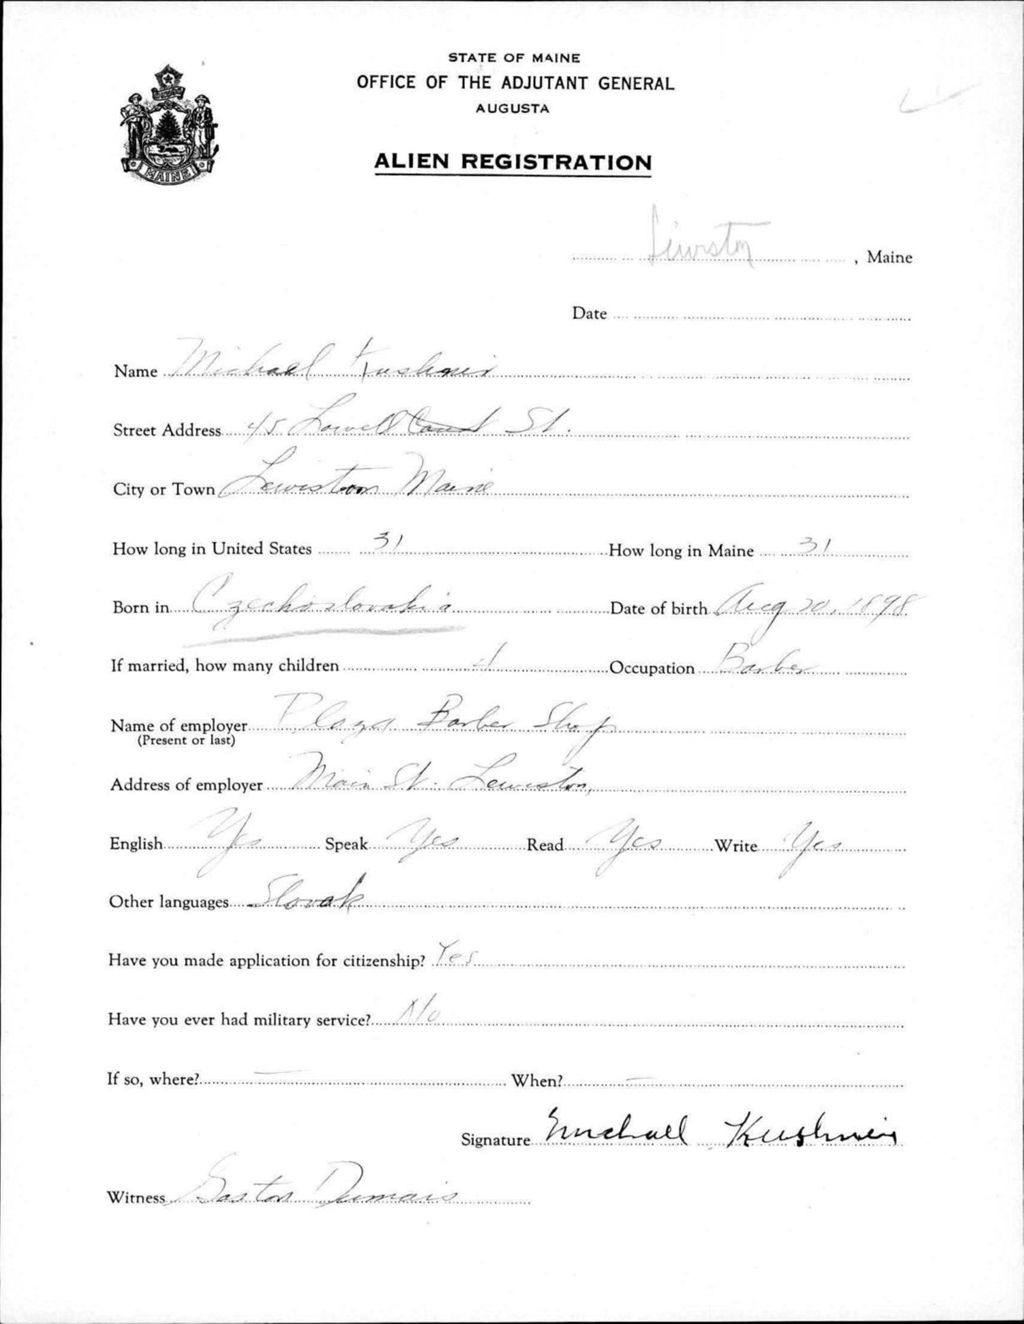 STATE OF MAINE
OFFICE OF THE ADJUTANT GENERAL
AUGUSTA
ALIEN REGISTRATION
MAINE
Lewiston, Maine
Date
Name Michael Kushner
Street Address 45 Lowell St.
City or Town Lewiston Maine
How long in United States 31 How long in Maine 31
Born in Czechoslovakia Date of birth Aug 20, 1898
If married, how many children 4 Occupation Barber
Name of employer Plaza Barber Shop
(Present or last)
Address of employer Main St. Lewiston,
English Yes Speak Yes Read Yes Write Yes
Other languages Slovak
Have you made application for citizenship? Yes
Have you ever had military service? No
If so, where? — When? —
Signature Michael Kushneir
Witness Gaston Dumais